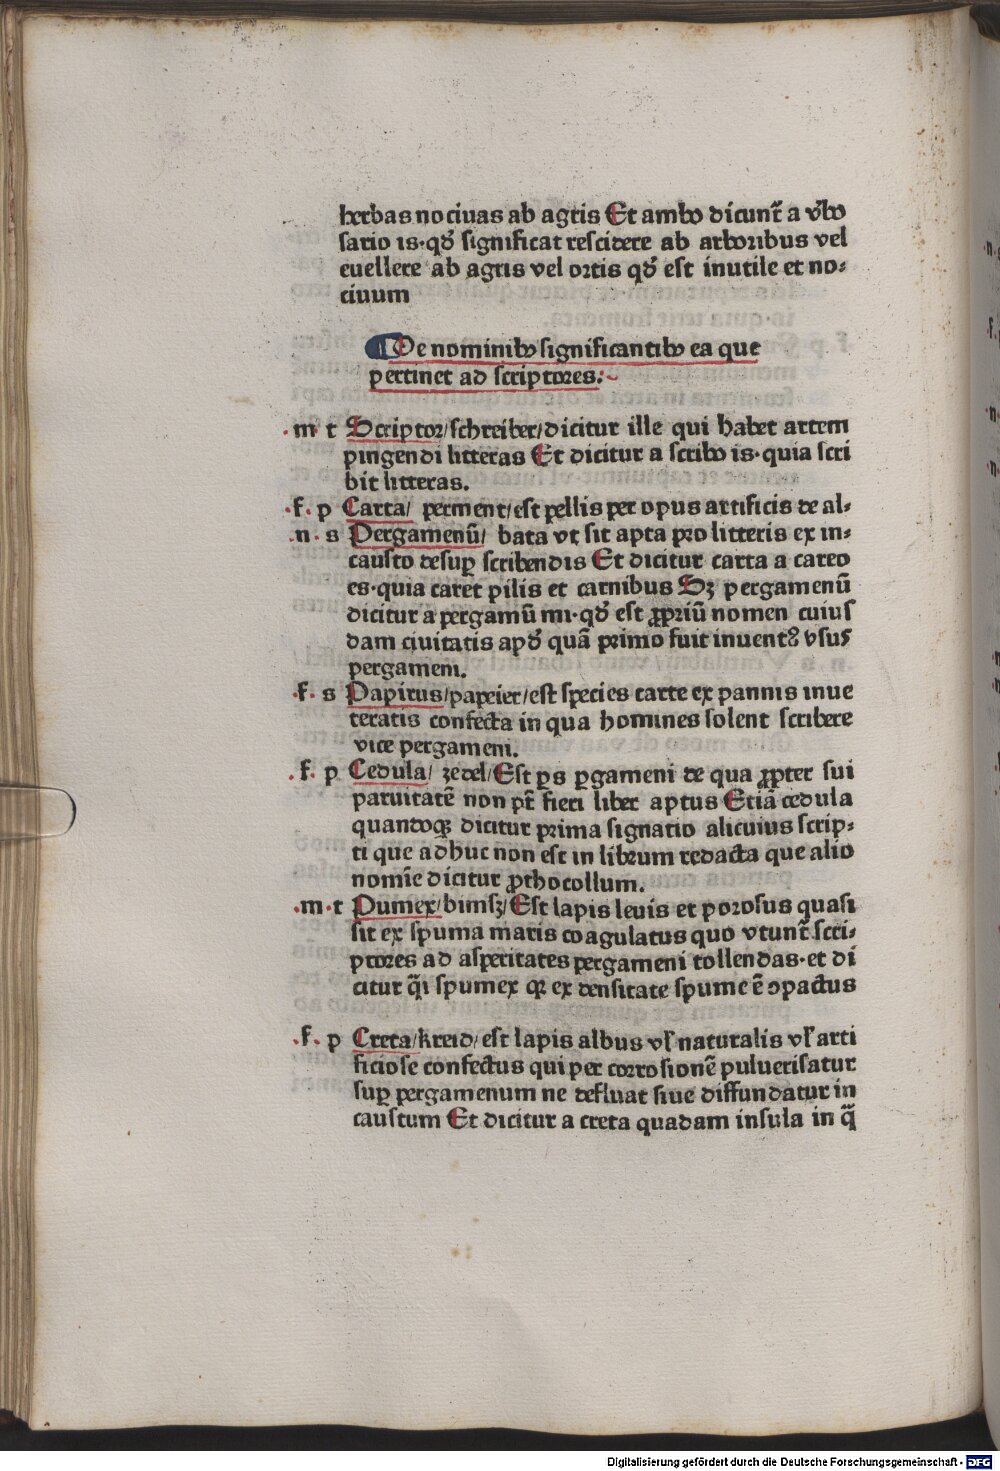 herbas nociuas ab agris Et ambo dicunt᷑ a vͤbo
sario is·qḋ significat rescidere ab arboribus vel
euellere ab agris vel ortis qḋ est inutile et no⸗
ciuum
¶ De nominibꝰ significantibꝰ ea que
pertinet ad scriptores:
·m·t Scriptor/schreiber/dicitur ille qui habet artem
pingendi litteras Et dicitur a scribo is·quia scri
bit litteras.
·f·p Carta/ perment/est pellis per opus artificis de al⸗
·n·s Pergamenū/ bata vt sit apta pro litteris ex in⸗
causto desuꝑ scribendis Et dicitur carta a careo
es·quia caret pilis et carnibus Sꝫ pergamenū
dicitur a pergamū mi·qḋ est ꝓpriū nomen cuius
dam ciuitatis apḋ quā primo fuit inuentꝰ vsus
pergameni.
·f·s Papirus/papeier/est species carte ex pannis inue
teratis confecta in qua homines solent scribere
vice pergameni.
·f·p Cedula/ zedel/Est ꝑs ꝑgameni de qua ꝓpter sui
paruitatē non pt̄ fieri liber aptus Etiā cedula
quandoqꝫ dicitur prima signatio alicuius scrip⸗
ti que adhuc non est in librum redacta que alio
nomīe dicitur ꝓthocollum.
·m·t Pumex/bimsz/Est lapis leuis et porosus quasi
sit ex spuma maris coagulatus quo vtunt᷑ scri⸗
ptores ad asperitates pergameni tollendas·et di
citur q̄si spumex qꝛ ex densitate spume ē ꝯpactus
·f·p Creta/kreid/est lapis albus vl̕ naturalis vl̕ arti
ficiose confectus qui per corrosionē puluerisatur
suꝑ pergamenum ne defluat siue diffundatur in
caustum Et dicitur a creta quadam insula in q̄
Digitalisierung gefördert durch die Deutsche Forschungsgemeinschaft - DFG